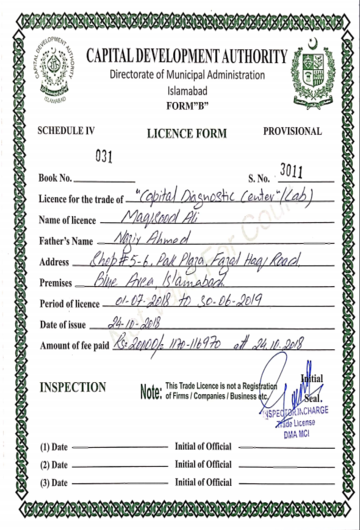 CAPITAL DEVELOPMENT AUTHORITY
ISLAMABAD
CAPITAL DEVELOPMENT AUTHORITY
Directorate of Municipal Administration
Islamabad
FORM"B"
SCHEDULE IV
LICENCE FORM
PROVISIONAL
Book No. 031
S. No. 3011
Licence for the trade of "Capital Diagnostic Center"(Lab)
Name of licence Maqsood Ali
Father's Name Nazir Ahmed
Address Shop # 5-6, Pak Plaza, Fazal Haq Road
Premises Blue Area, Islamabad
Period of licence 01-07-2018 to 30-06-2019
Date of issue 24-10-2018
Amount of fee paid Rs. 20000/- 1170-116970 24.10.2018
INSPECTION
Note: This Trade Licence is not a Registration
of Firms / Companies / Business etc.
Initial
Seal.
INSPECTOR INCHARGE
Trade License
DMA MCI
(1) Date Initial of Official
(2) Date Initial of Official
(3) Date Initial of Official